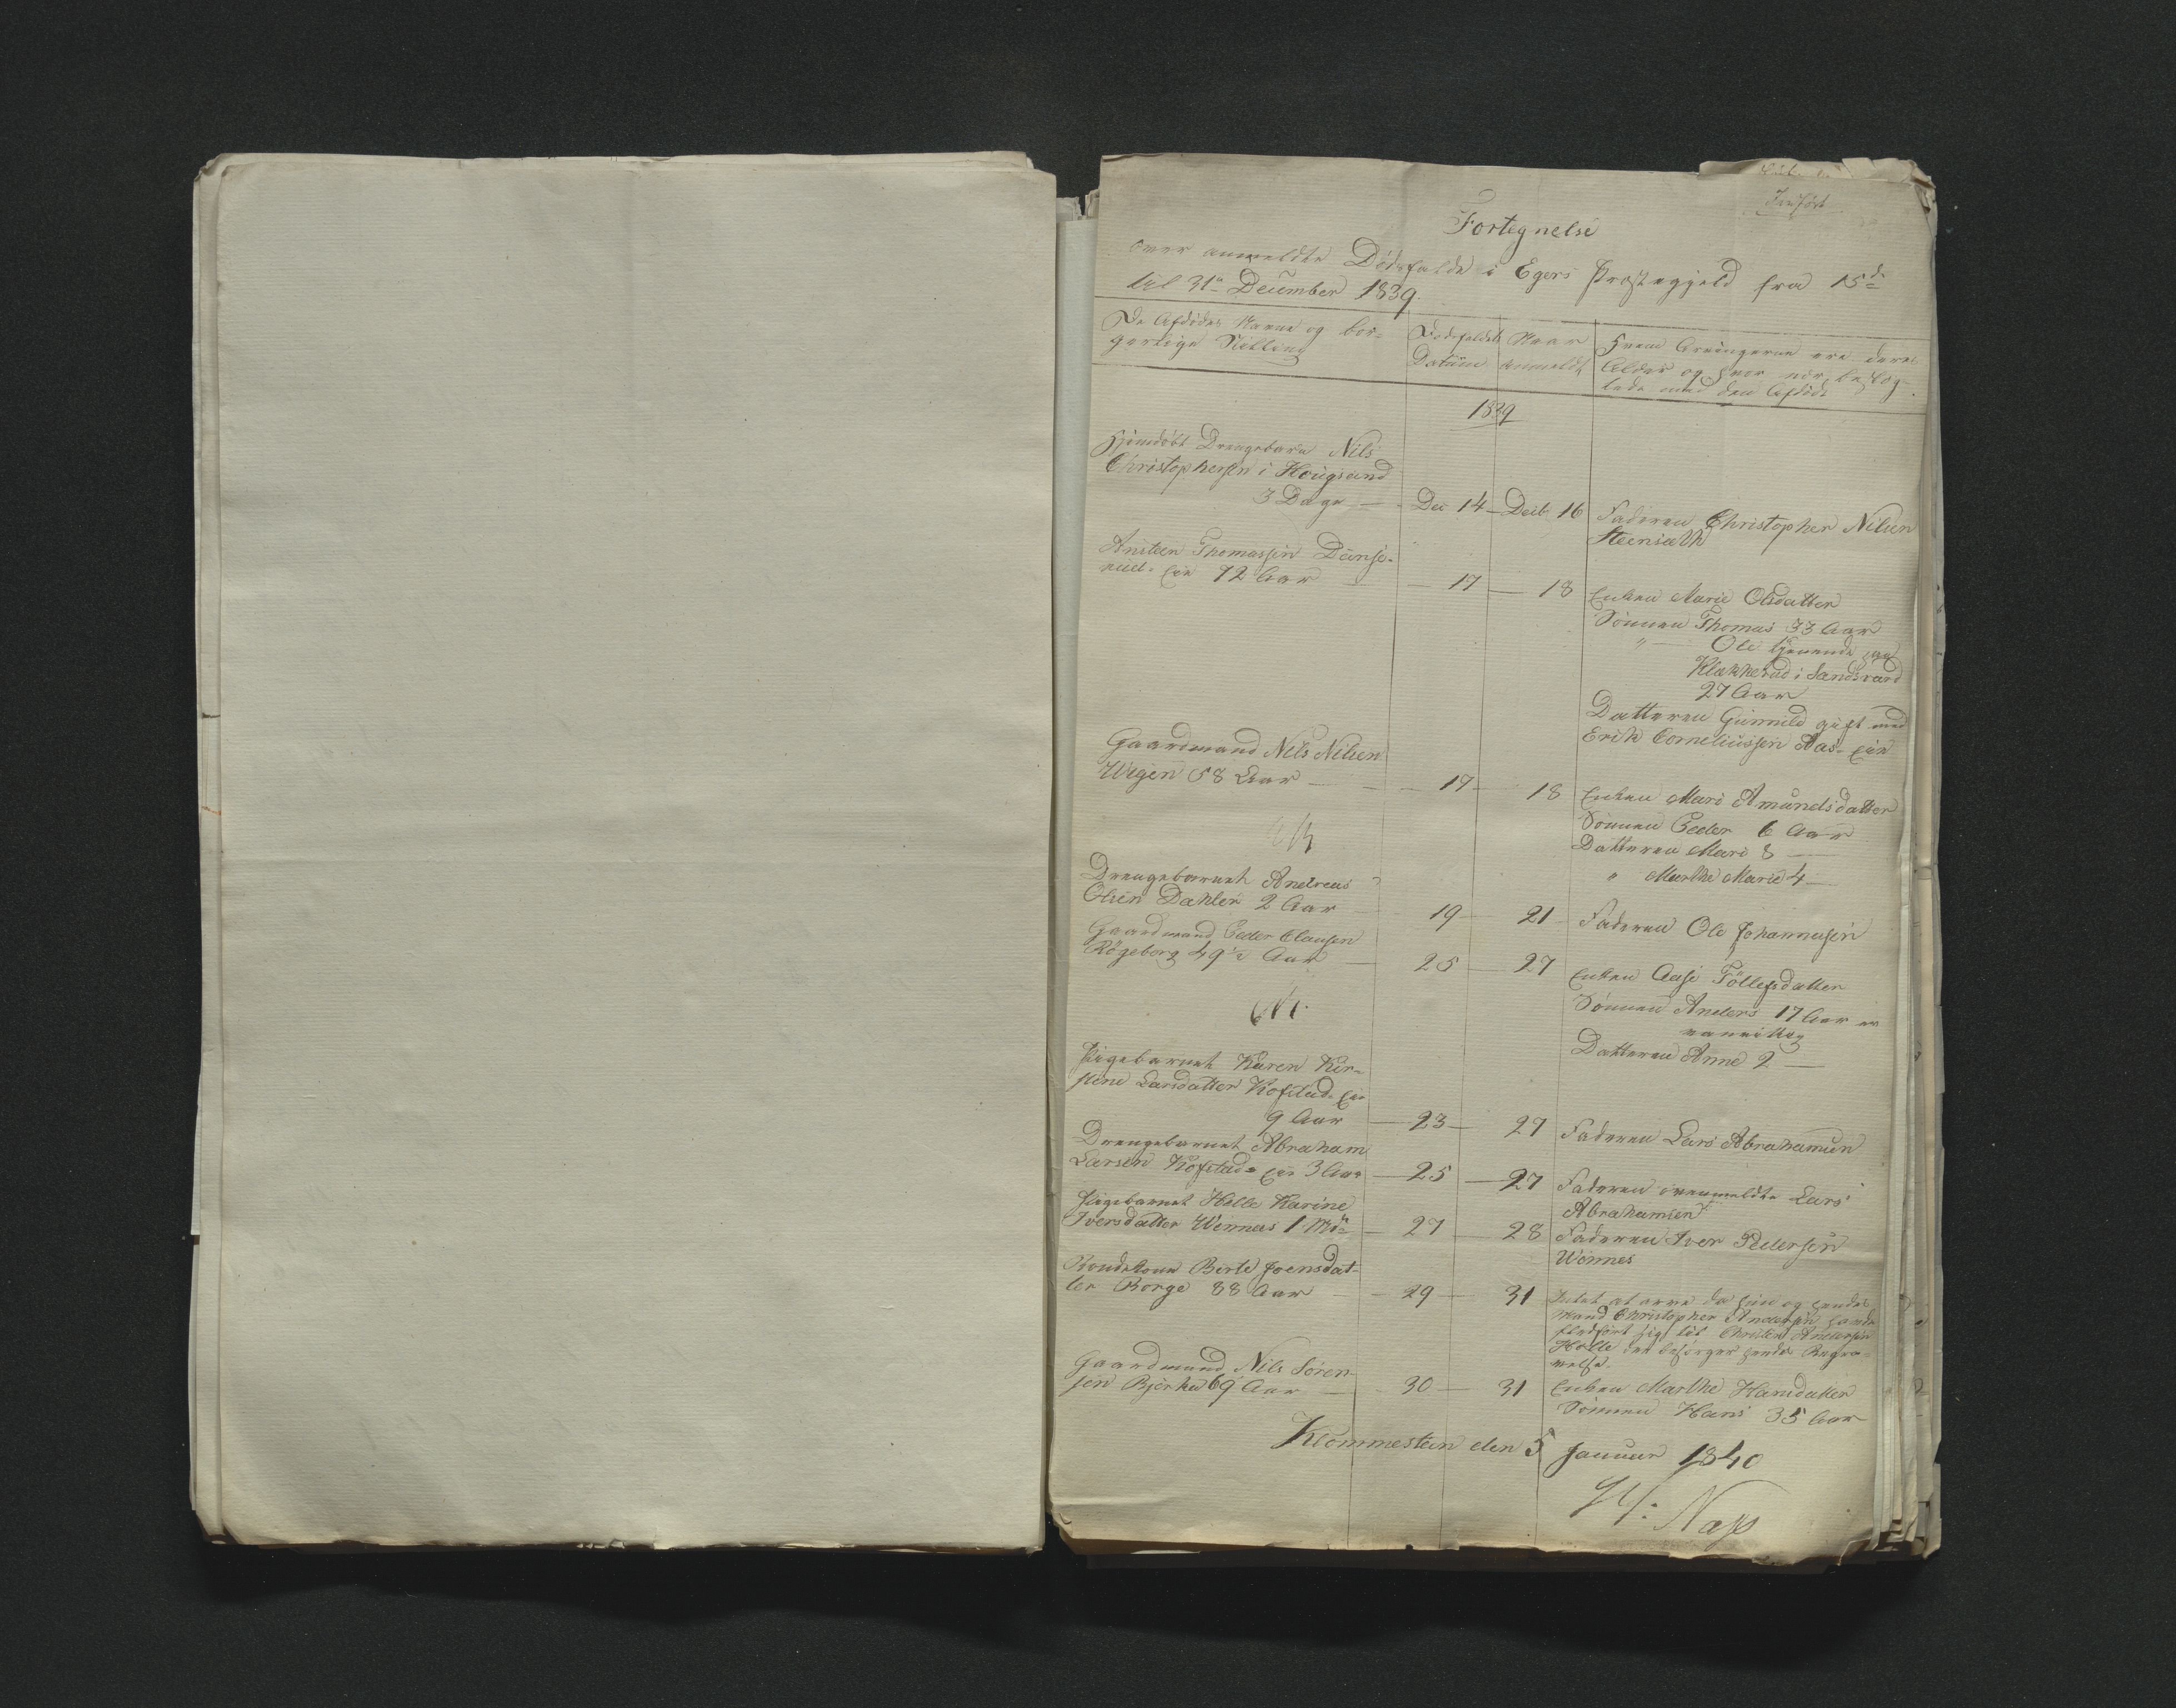 Indført
Fortegnelse
over anmeldte Dødsfalde i Egers Præstegjeld fra 15de
til 31te December 1839.
De Afdødes Navne og bor-
gerlige Stilling
Dødsfaldets
Datum
Naar
anmeldt
Hvem Arvingerne ere deres
Alder og hvor nær beslæg-
tede med den Afdøde
1839
Hjemdøbt Drengebarn Nils
Christophersen i Hougsund
3 Dage — Dec 14 — Decbr 16 Faderen Christopher Nilsen
Steensæth
Ansteen Thomassen Dunse-
rud. Eie 72 Aar — 17 — 18 Enken Marie Olsdatter
Sønnen Thomas 33 Aar
" Ole tjenende paa
Klækkerud i Sandsværd
27 Aar
Datteren Gunnild gift med
Erik Corneliussen Aas. Eie
Gaardmand Nils Nilsen
Wegen 58 Aar — 17 — 18 Enken Mari Amundsdatter
Sønnen Peder 6 Aar
Datteren Mari 8 —
" Marthe Marie 4 —
Drengebarnet Andreas
Olsen Dahler 2 Aar — 19 — 21 Faderen Ole Johannesen
Gaardmand Peder Clausen
Røgeberg 49½ Aar — 25 — 27 Enken Aase Tollefsdatter
Sønnen Anders 17 Aar er
vanvittig
Datteren Anne 2 —
Pigebarnet Karen Kir-
stine Larsdatter Kofstad. Eie
9 Aar — 23 — 27 Faderen Lars Abrahamsen
Drengebarnet Abraham
Larsen Kofstad. Eie 3 Aar — 25 — 27 Faderen ovenmeldte Lars
Abrahamsen
Pigebarnet Helle Karine
Iversdatter Wennes 1 Md — 27 — 28 Faderen Iver Pedersen
Wennes
Bondekone Berte Joensdat-
ter Borge 88 Aar — 29 — 31 Intet at arve da hun og hendes
Mand Christopher Andersen havde
fledført sig til Christen Andersen
Holte der besørger hendes Begra-
velse.
Gaardmand Nils Søren-
sen Bjerke 69 Aar — 30 — 31 Enken Marthe Hansdatter
Sønnen Hans 35 Aar
Klommesteen den 5 Januar 1840
Næss